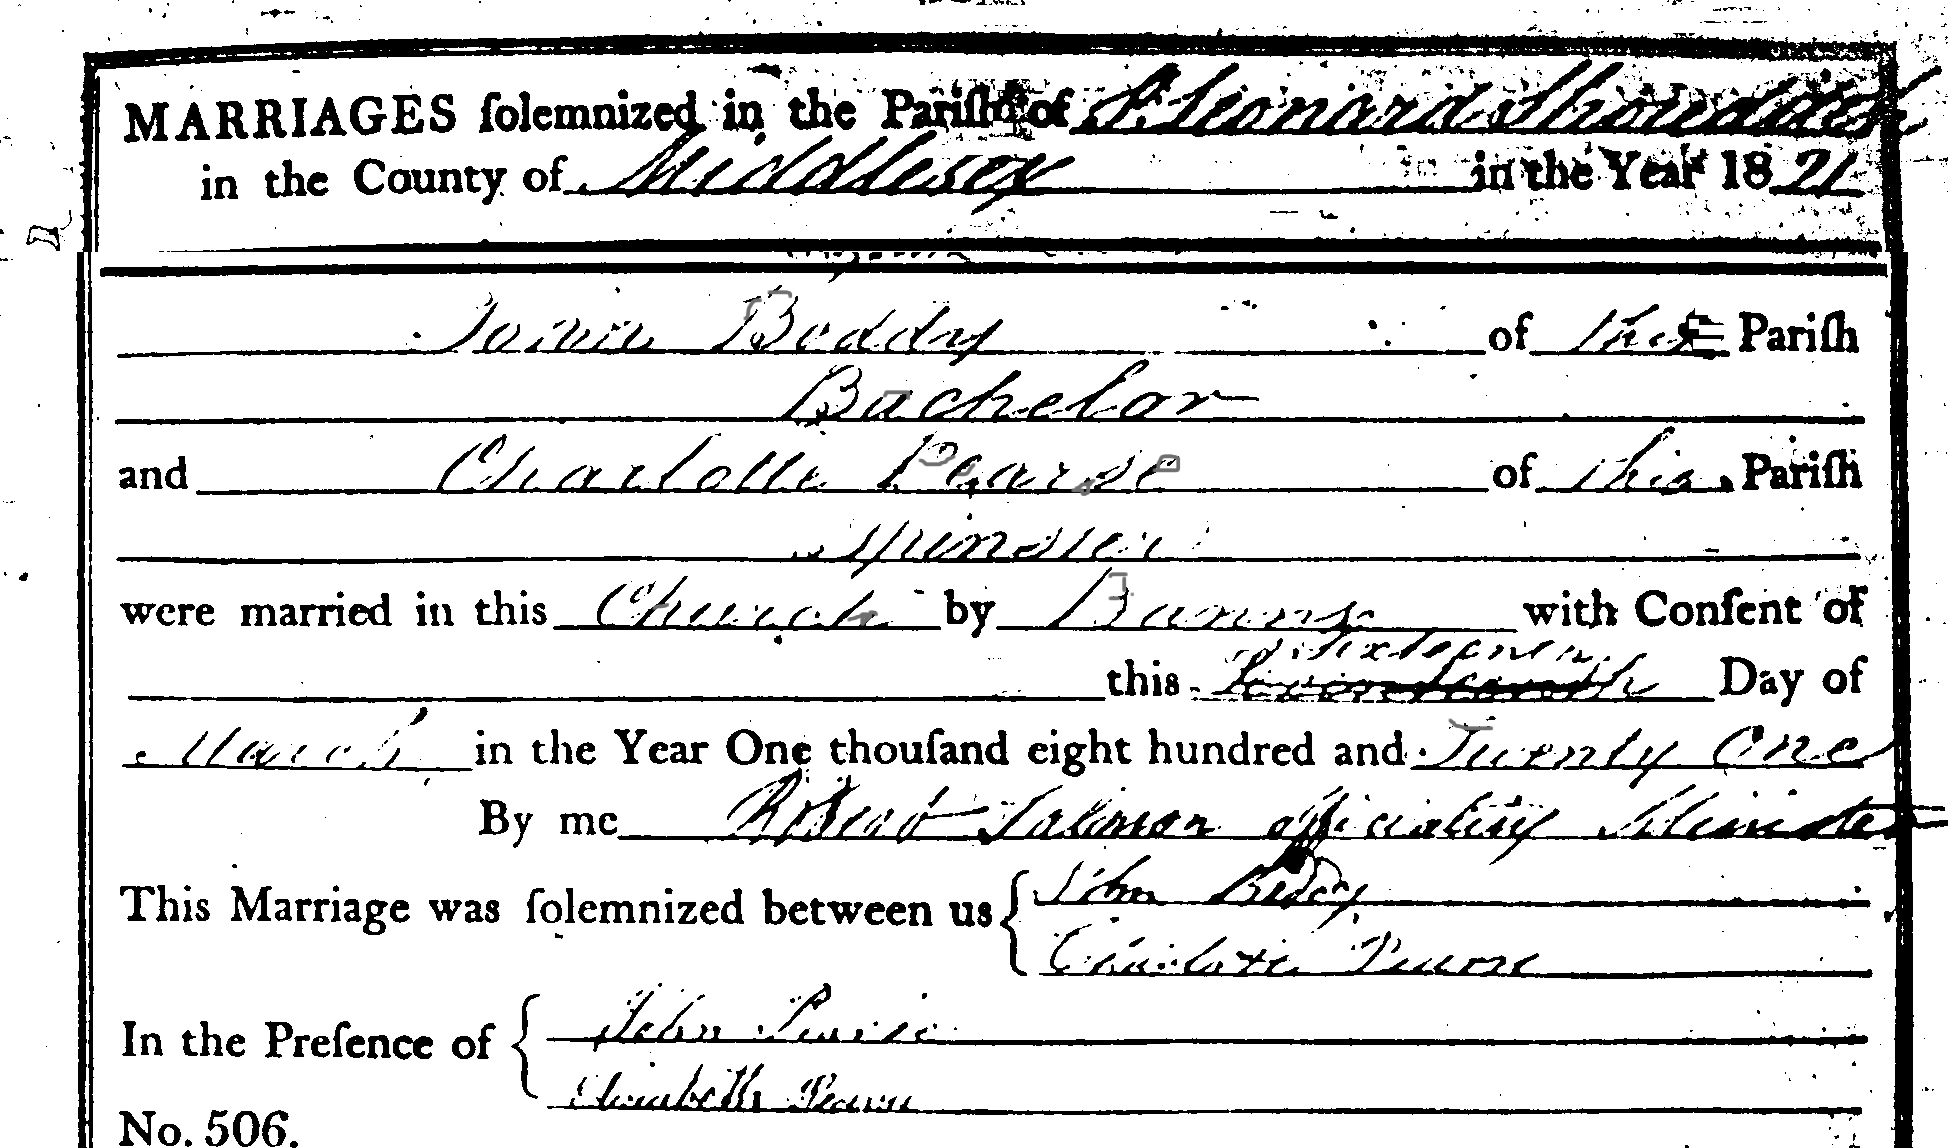 MARRIAGES ſolemnized in the Pariſh of St. Leonard Shoreditch
in the County of Middlesex in the Year 1821
John Boddy of this Pariſh
Bachelor
and Charlotte Pearse of this Pariſh
Spinster
were married in this Church by Banns with Conſent of
Sixteenth
this Seventeenth Day of
March in the Year One thouſand eight hundred and Twenty One
By me Robert Salmon officiating Minister
This Marriage was ſolemnized between us John Boddy
Charlotte Pearse
In the Preſence of John Pearse
Elizabeth Pearse
No. 506.